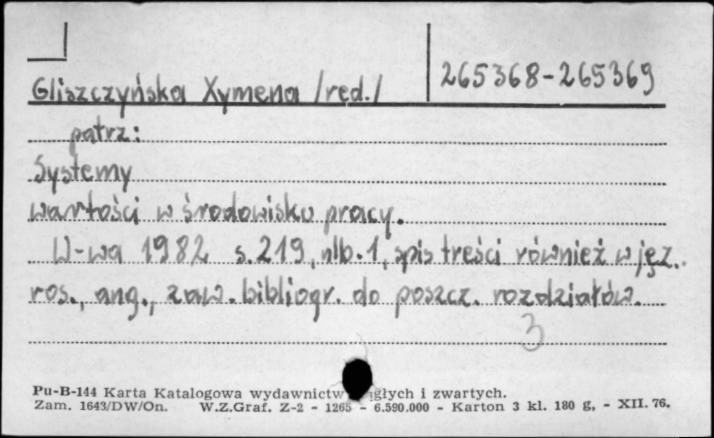 265368-265369
Gliszczyńska Xymena /red./
patrz:
Systemy
wartości w środowisku pracy.
W-wa 1982 s. 219, nlb. 1, spis treści również w jęz.
ros., ang., zaw. bibliogr. do poszcz. rozdziałów.
3
Pu-B-144 Karta Katalogowa wydawnictw i zwartych.
Zam. 1643/DW/On. W.Z.Graf. Z-2 - 1265 - 6.590.000 - Karton 3 kl. 180 g, - XII. 76.